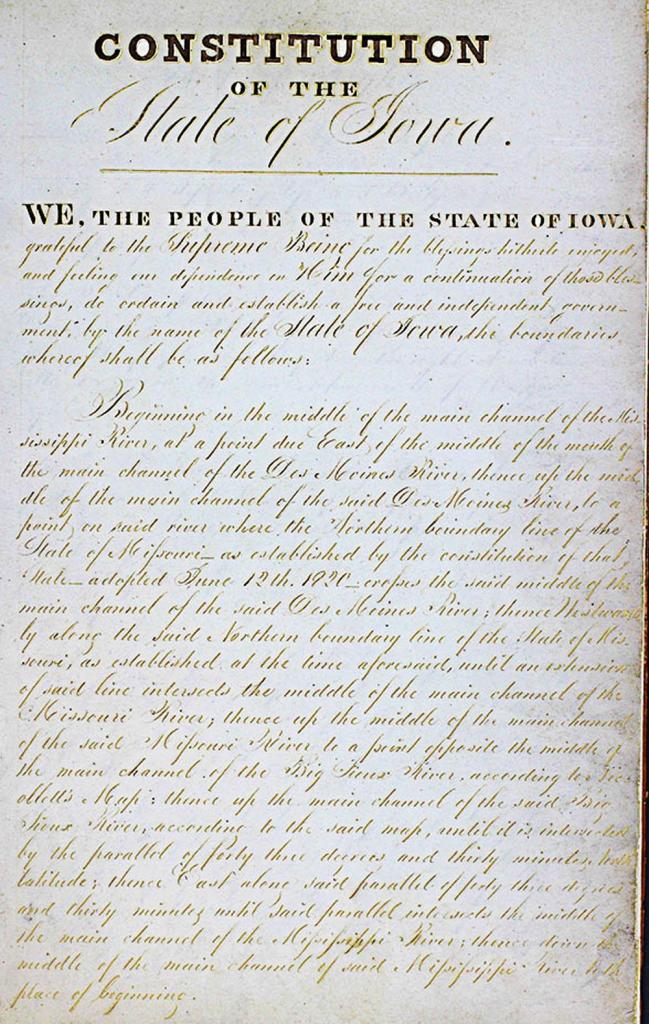 CONSTITUTION
OF THE
State of Iowa.
WE, THE PEOPLE OF THE STATE OF IOWA,
grateful to the Supreme Being for the blessings hitherto enjoyed,
and feeling our dependence on Him for a continuation of those bles-
sings, do ordain and establish a free and independent govern-
ment, by the name of the State of Iowa, the boundaries
whereof shall be as follows:
Beginning in the middle of the main channel of the Mis-
sissippi River, at a point due East of the middle of the mouth of
the main channel of the Des Moines River, thence up the mid
dle of the main channel of the said Des Moines River, to a
point on said river where the Northern boundary line of the
State of Missouri—as established by the constitution of that
State—adopted June 12th. 1820—crosses the said middle of the
main channel of the said Des Moines River; thence Westward-
ly along the said Northern boundary line of the State of Mis-
souri, as established at the time aforesaid, until an extension
of said line intersects the middle of the main channel of the
Missouri River; thence up the middle of the main channel
of the said Missouri River to a point opposite the middle of
the main channel of the Big Sioux River, according to Nic-
ollett's Map; thence up the main channel of the said Big
Sioux River, according to the said map, until it is intersected
by the parallel of forty three degrees and thirty minutes, North
latitude; thence East along said parallel of forty three degrees
and thirty minutes until said parallel intersects the middle of
the main channel of the Mississippi River; thence down the
middle of the main channel of said Mississippi River to the
place of beginning.